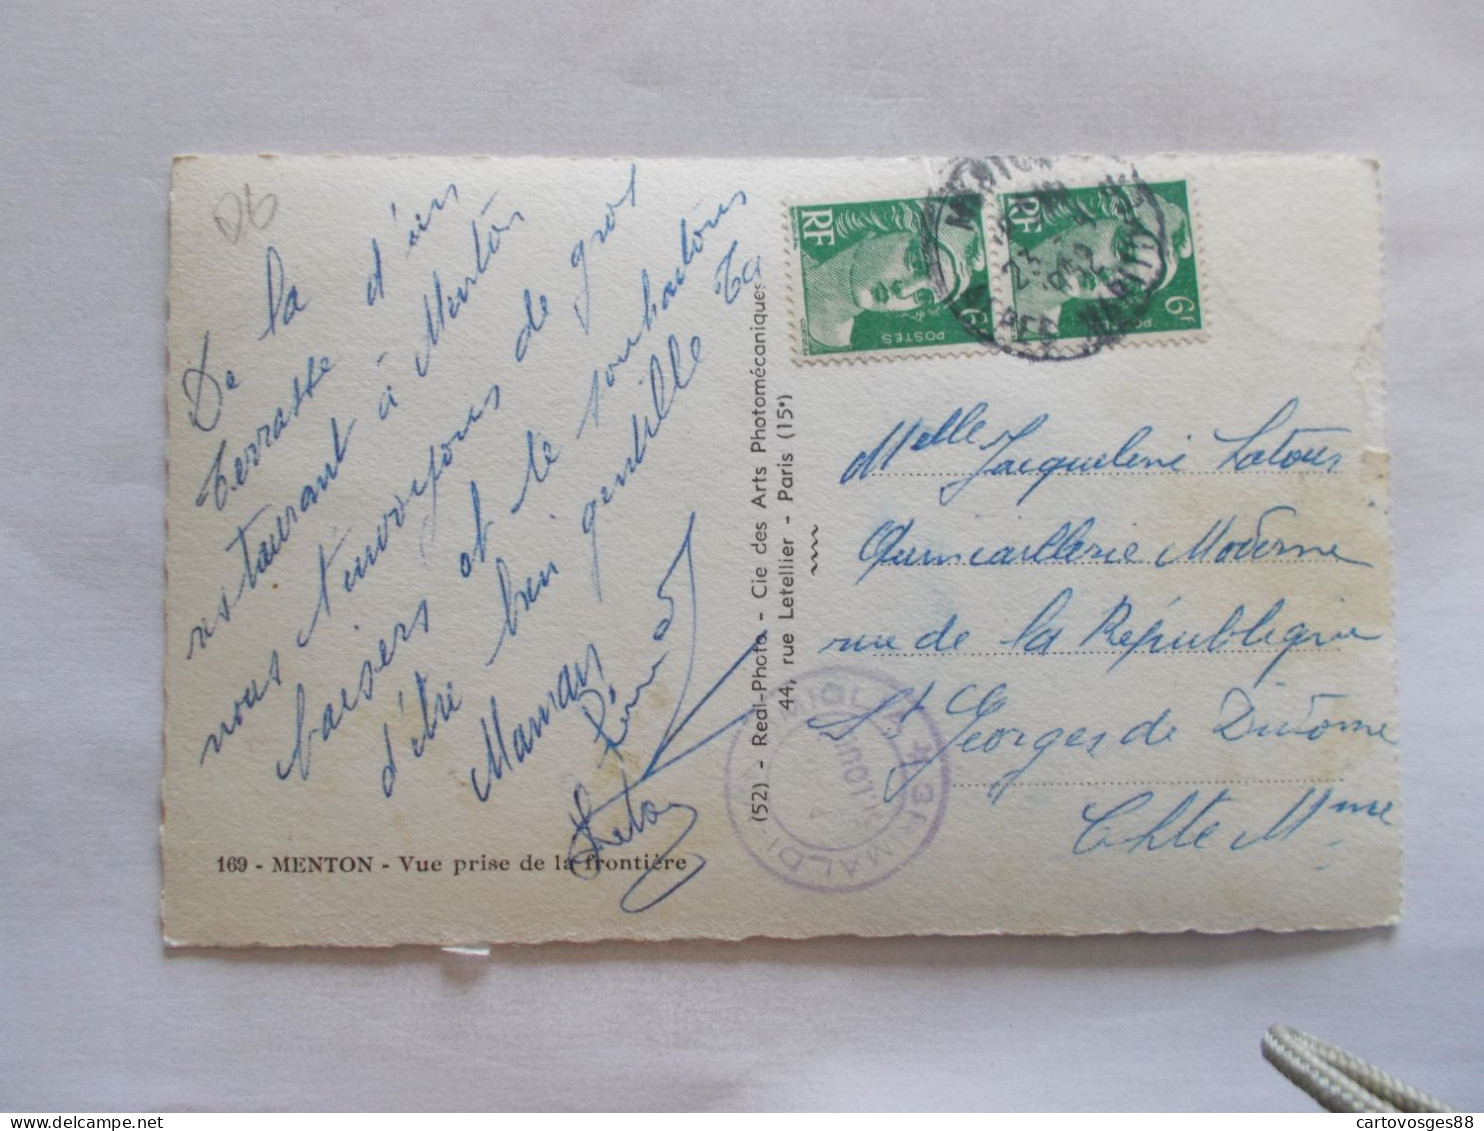 De la
terrasse d'un
restaurant à Menton
nous t'envoyons de gros
baisers et te souhaitons
d'être bien gentille Ta
Maman
169 - MENTON - Vue prise de la frontière
(52) - Real-Photo - Cie des Arts Photomécaniques
44, rue Letellier - Paris (15e)
RF
POSTES
6F
RF
6F
MENTON
Melle Jacqueline Latour
Quincaillerie Moderne
rue de la République
St Georges de Didonne
Chte Mme
GRIMALDI